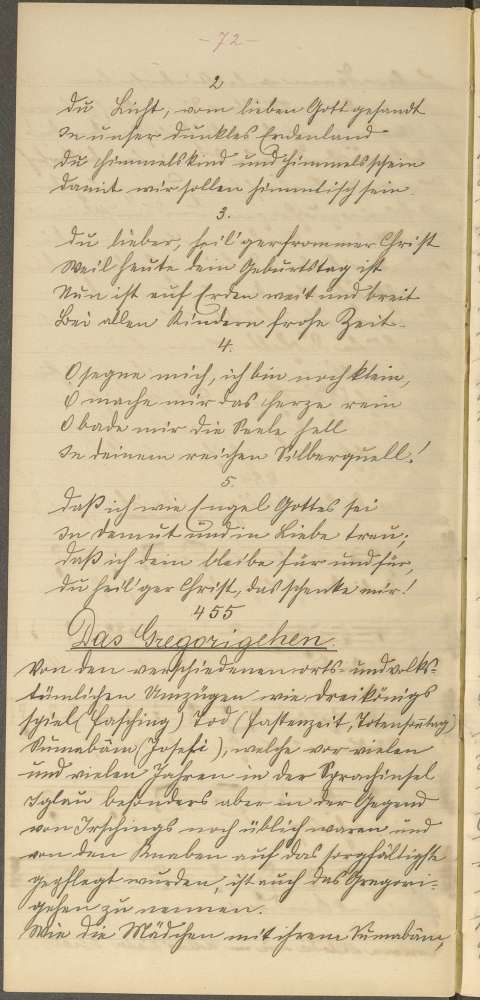 -72-
2
Du Licht, vom lieben Gott gesandt
In unser dunkles Erdenland
Du Himmelskind und Himmelsschein
Damit wir sollen himmlisch sein.
3.
Du lieber, heil'ger frommer Christ
Weil heute dein Geburtstag ist
Nun ist auf Erden weit und breit
Bei allen Kindern frohe Zeit.
4.
O segne mich, ich bin noch klein,
O mache mir das Herze rein
O bade mir die Seele hell
In deinem reichen Silberquell!
5.
Daß ich wie Engel Gottes sei
In Demut und in Liebe treu;
Daß ich dein bleibe für und für,
Du heil'ger Christ, das schenke mir!
455
Das Gregorigehen.
Von den verschiedenen orts- und volks-
tümlichen Umzügen wie Dreikönigs
spiel (Fasching) Tod (Fastenzeit, Totensonntag)
Sumabäm (Josefi), welche vor vielen
und vielen Jahren in der Sprachinsel
Iglau besonders aber in der Gegend
von Irschings noch üblich waren und
von den Knaben auf das sorgfältigste
gepflegt wurden, ist auch das Gregori-
gehen zu nennen.
Wie die Mädchen mit ihrem Sumabäm,